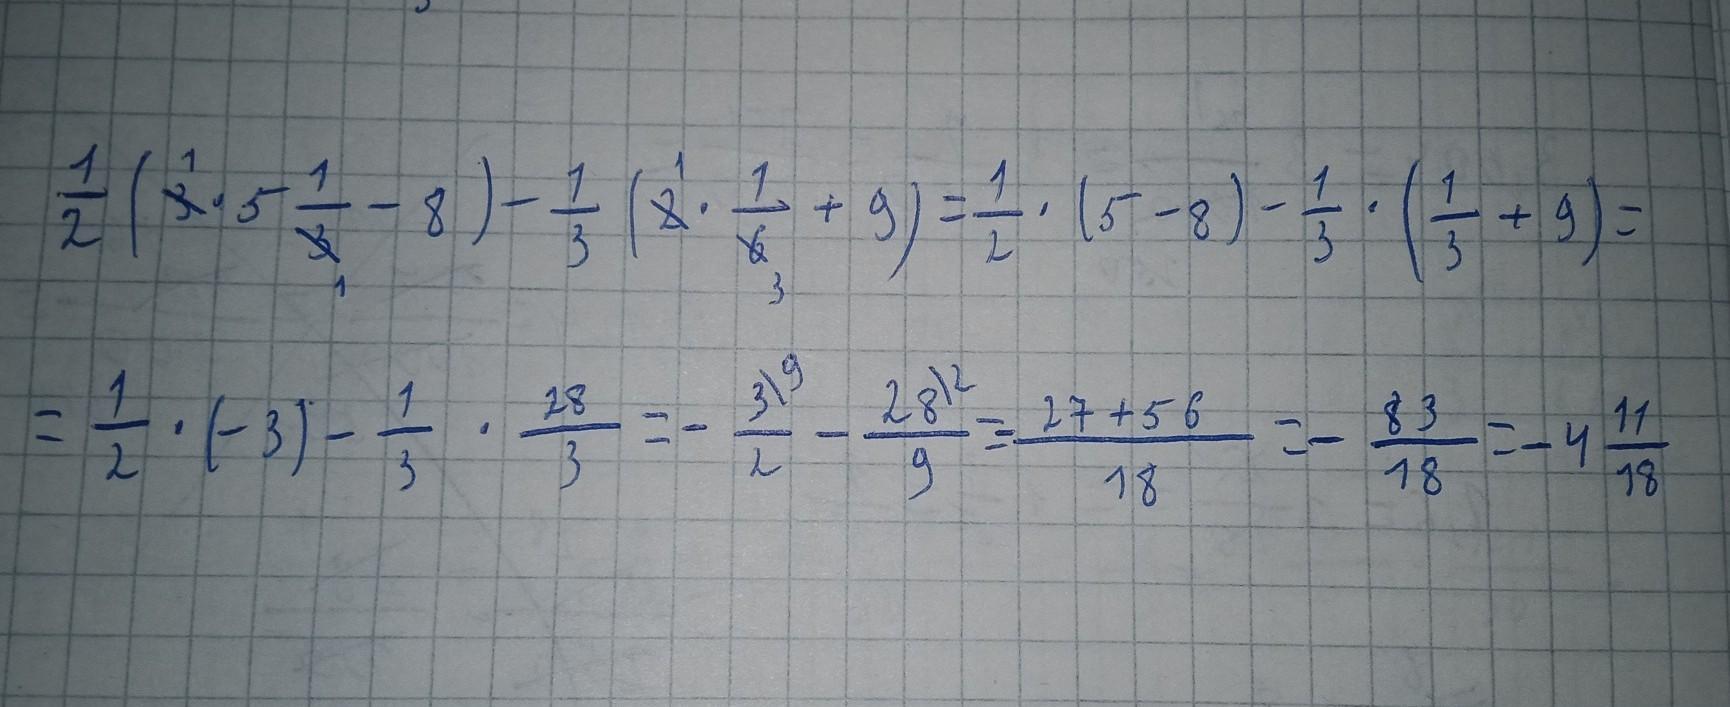 1/2 (3̸¹ · 5 1/3̸₁ - 8) - 1/3 (2̸¹ · 1/6̸₃ + 9) = 1/2 · (5 - 8) - 1/3 · (1/3 + 9) =
= 1/2 · (-3) - 1/3 · 28/3 = - 3\⁹/2 - 28\²/9 = 27+56/18 = - 83/18 = -4 11/18